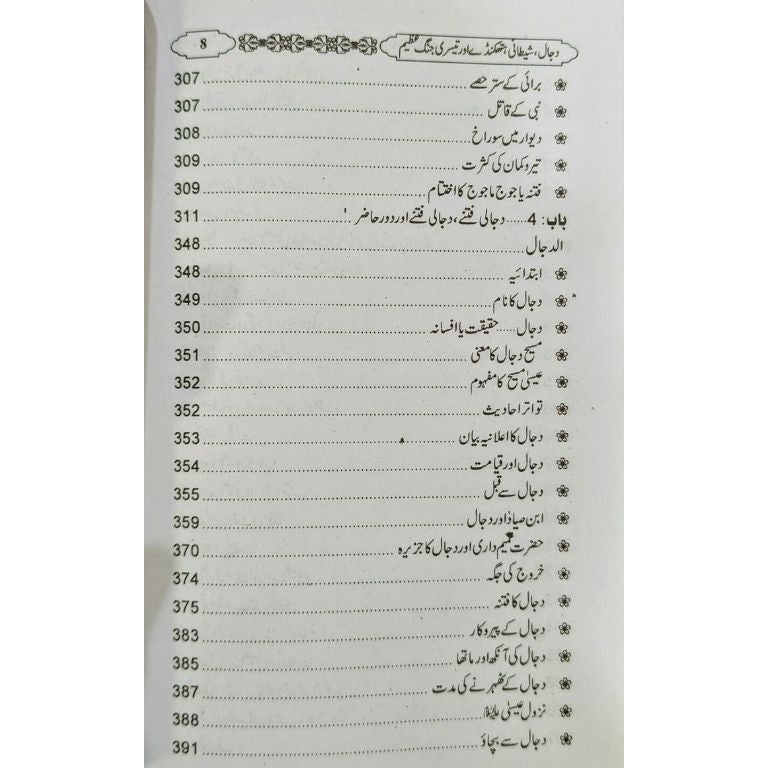 دجال، شیطانی ہتھکنڈے اور تیسری جنگ عظیم 8
برائی کے ستر حصے 307
نبی کے قاتل 307
دیوار میں سوراخ 308
تیر و کمان کی کثرت 309
فتنہ یاجوج ماجوج کا اختتام 309
باب: 4 ...... دجالی فتنے، دجالی فتنے اور دور حاضر 311
الدجال 348
ابتدائیہ 348
دجال کا نام 349
دجال ...... حقیقت یا افسانہ 350
مسیح دجال کا معنی 351
عیسیٰ مسیح کا مفہوم 352
تواتر احادیث 352
دجال کا اعلانیہ بیان 353
دجال اور قیامت 354
دجال سے قبل 355
ابن صیاد اور دجال 359
حضرت تمیم داری اور دجال کا جزیرہ 370
خروج کی جگہ 374
دجال کا فتنہ 375
دجال کے پیروکار 383
دجال کی آنکھ اور ماتھا 385
دجال کے ٹھہرنے کی مدت 387
نزول عیسیٰ علیہ السلام 388
دجال سے بچاؤ 391